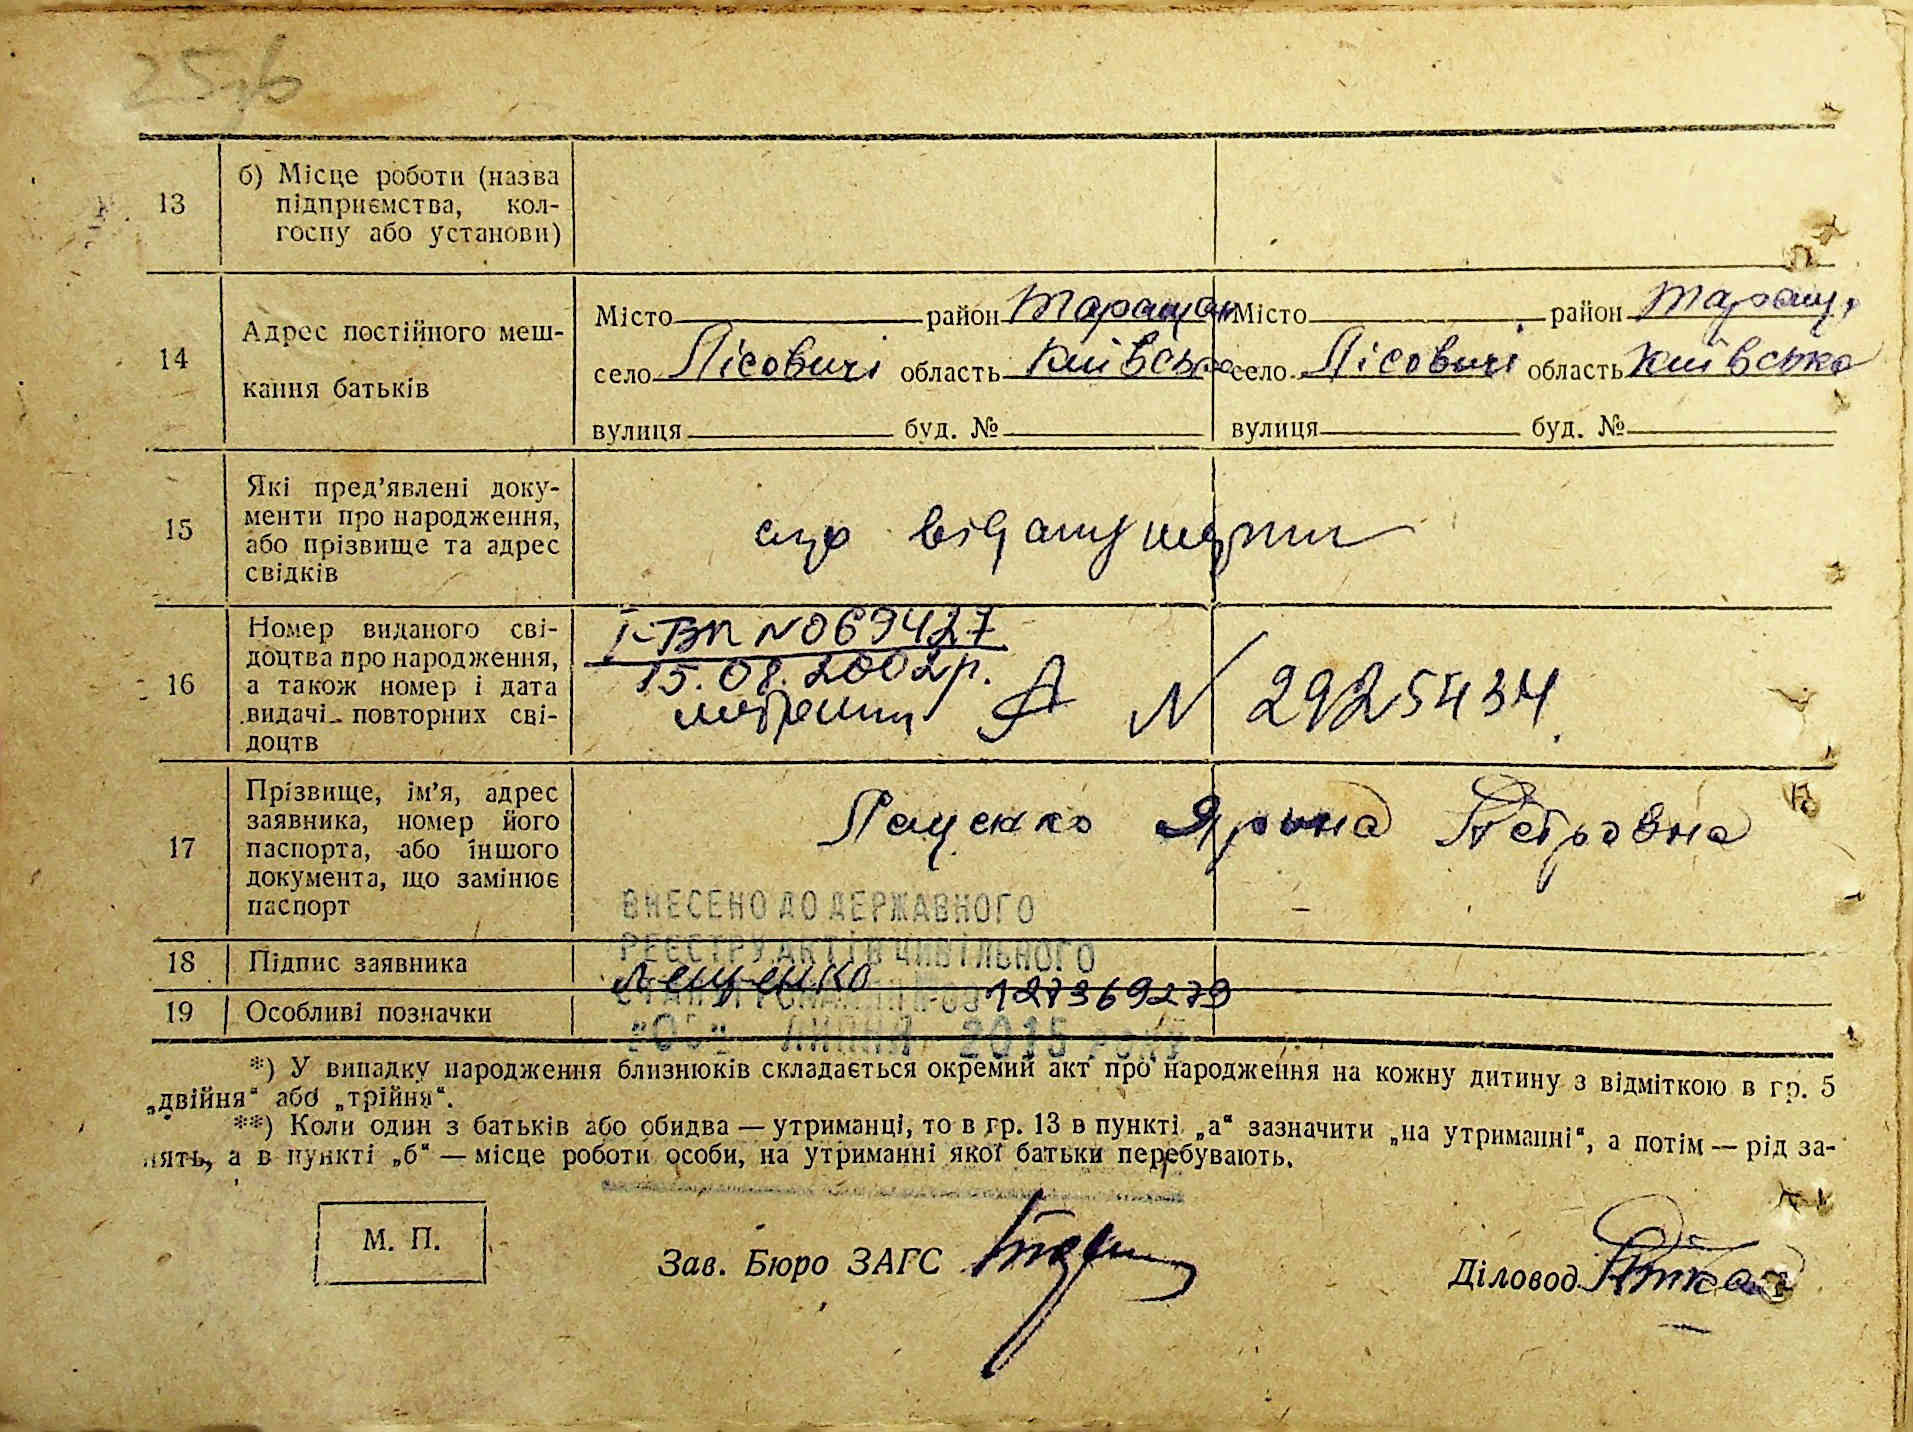 25
13
б) Місце роботи (назва
підприємства, кол-
госпу або установи)
14
Адрес постійного меш-
кання батьків
Місто район Таращан
село Лісовичі область Київська
вулиця буд. №
Місто район Таращ.
село Лісовичі область Київська
вулиця буд. №
15
Які пред’явлені доку-
менти про народження,
або прізвище та адрес
свідків
16
Номер виданого сві-
доцтва про народження,
а також номер і дата
видачі повторних сві-
доцтв
І-БК N069427
15.08.2002р.
А N 2925434
17
Прізвище, ім’я, адрес
заявника, номер його
паспорта, або іншого
документа, що замінює
паспорт
Лещенко Ярина Петровна
ВНЕСЕНО ДО ДЕРЖАВНОГО
РЕЄСТРУ АКТІВ ЦИВІЛЬНОГО
18
Підпис заявника
Лещенко
СТАНУ ГРОМАДЯН №00127369279
19
Особливі позначки
ЛИПНЯ 2015 року
*) У випадку народження близнюків складається окремий акт про народження на кожну дитину з відміткою в гр. 5
„двійня“ або „трійня“.
**) Коли один з батьків або обидва — утриманці, то в гр. 13 в пункті „а“ зазначити „на утриманні“, а потім — рід за-
нять, а в пункті „б“ — місце роботи особи, на утриманні якої батьки перебувають.
М. П.
Зав. Бюро ЗАГС
Діловод